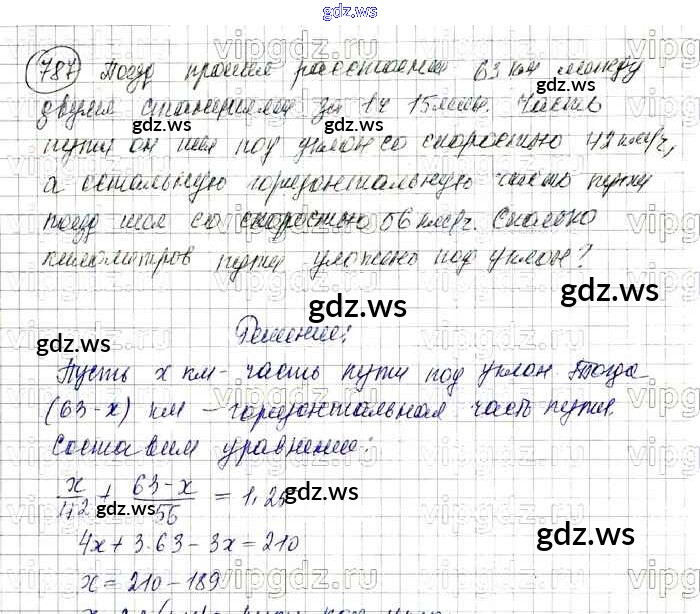 gdz.ws
787 Поезд прошел расстояние 63 км между
двумя станциями за 1ч 15мин. Часть
пути он шел под уклон со скоростью 42 км/ч,
а остальную горизонтальную часть пути
поезд шел со скоростью 56 км/ч. Сколько
километров пути уложено под уклон?
Решение:
Пусть x км - часть пути под уклон. Тогда
(63-x) км - горизонтальная часть пути.
Составим уравнение:
x/42 + 63-x/56 = 1,25
4x + 3·63 - 3x = 210
x = 210 - 189